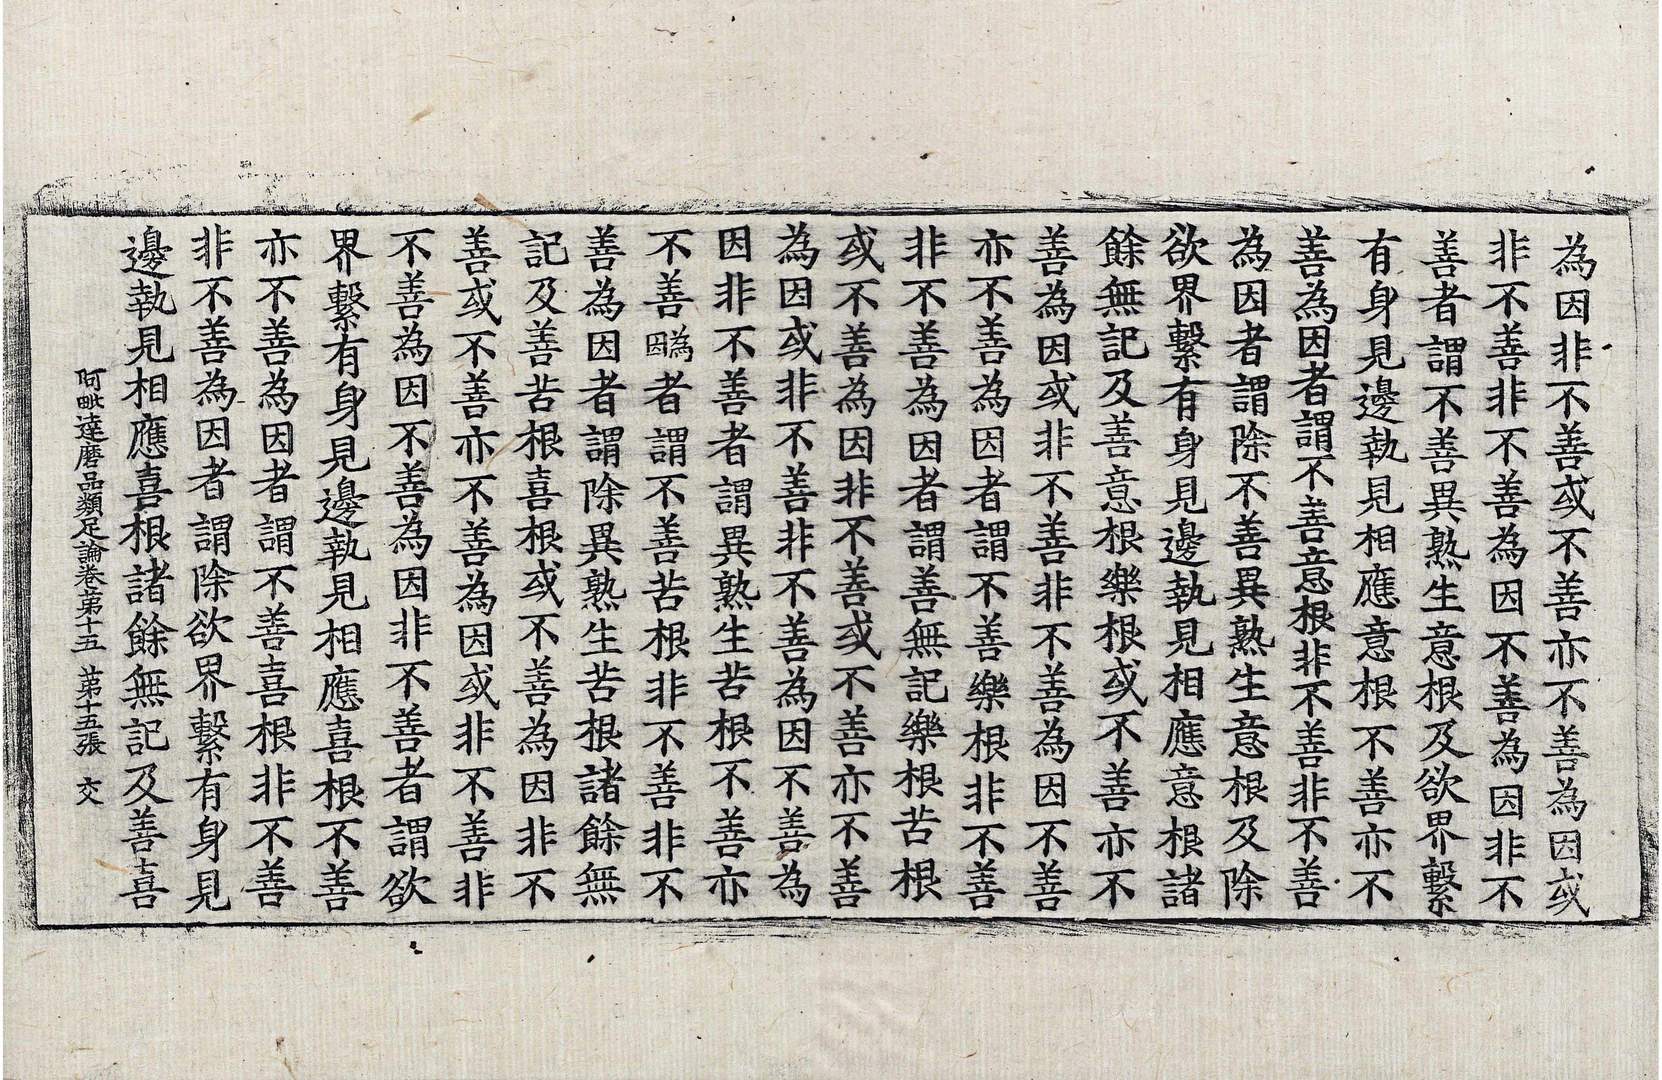 為因非不善或不善亦不善為因或
非不善非不善為因不善為因非不
善者謂不善異熟生意根及欲界繫
有身見邊執見相應意根不善亦不
善為因者謂不善意根非不善非不善
為因者謂除不善異熟生意根及除
欲界繫有身見邊執見相應意根諸
餘無記及善意根樂根或不善亦不
善為因或非不善非不善為因不善
亦不善為因者謂不善樂根非不善
非不善為因者謂善無記樂根苦根
或不善為因非不善或不善亦不善
為因或非不善非不善為因不善為
因非不善者謂異熟生苦根不善亦
不善為因者謂不善苦根非不善非不
善為因者謂除異熟生苦根諸餘無
記及善苦根喜根或不善為因非不
善或不善亦不善為因或非不善非
不善為因不善為因非不善者謂欲
界繫有身見邊執見相應喜根不善
亦不善為因者謂不善喜根非不善
非不善為因者謂除欲界繫有身見
邊執見相應喜根諸餘無記及善喜
阿毗達磨品類足論卷第十五 第十五張 交